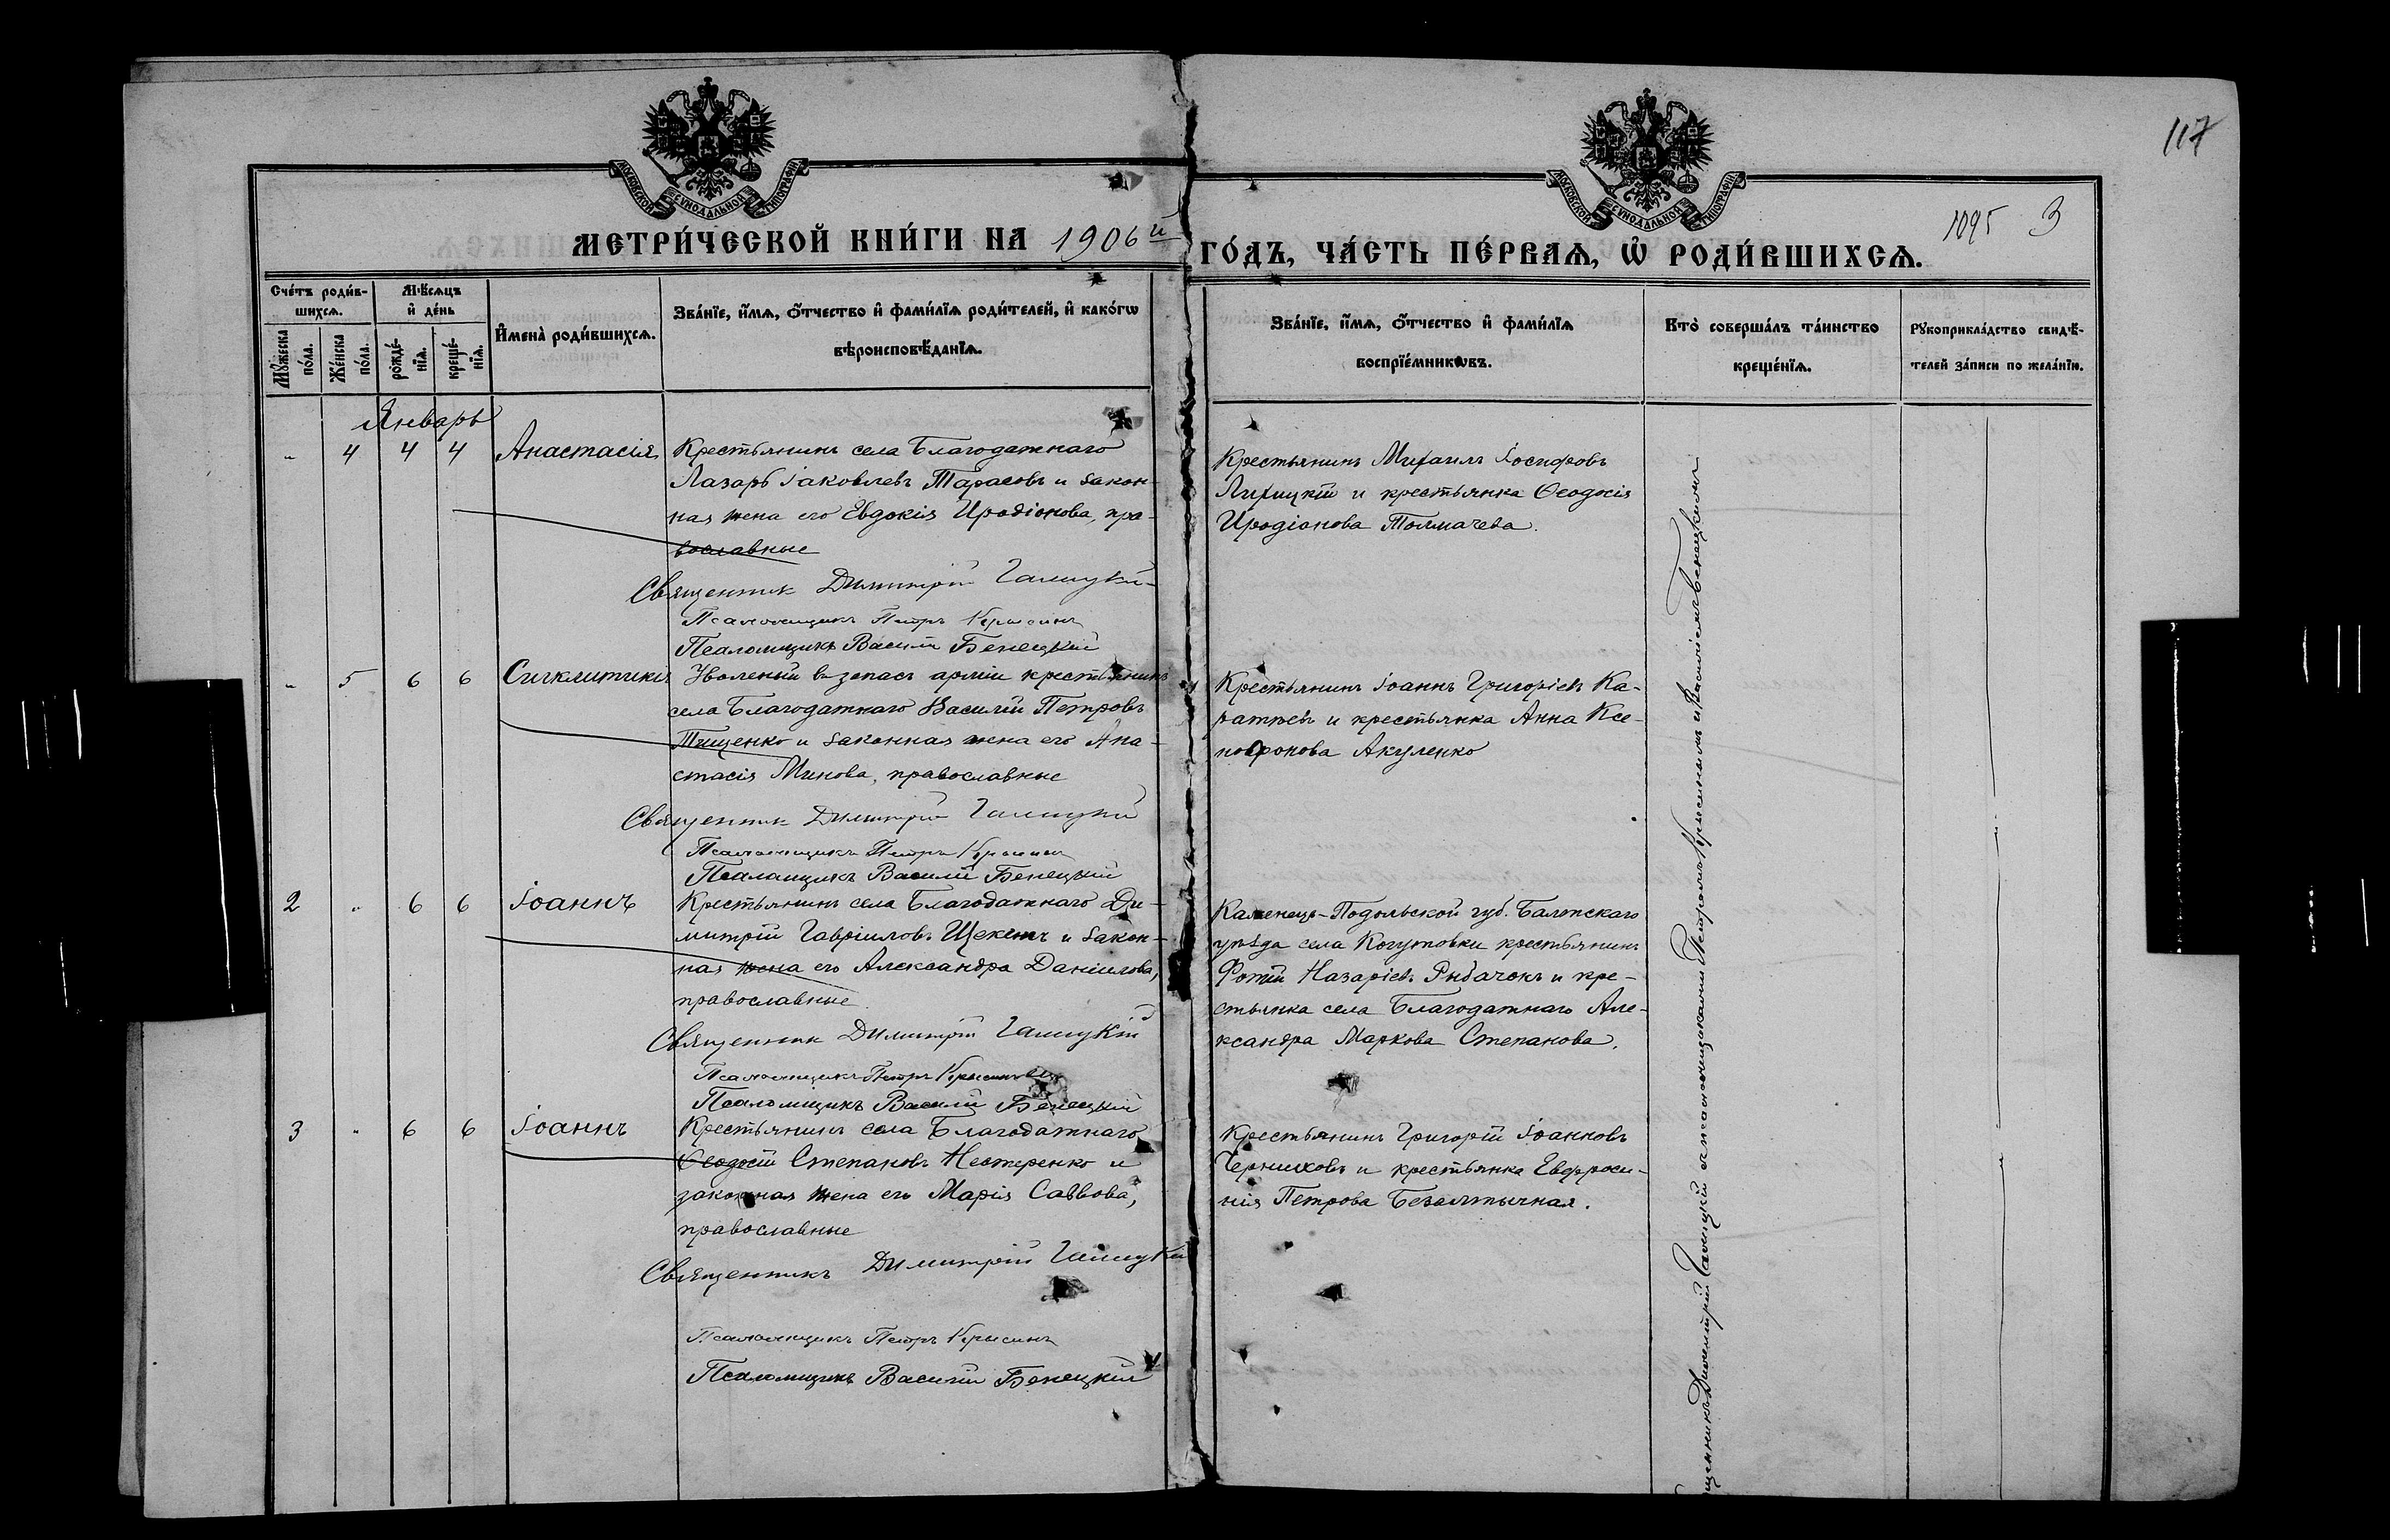 117
МОСКОВСКОЙ СѴНОДАЛЬНОЙ ТИПОГРАФІИ
МОСКОВСКОЙ СѴНОДАЛЬНОЙ ТИПОГРАФІИ
1895 3
МЕТРИ́ЧЕСКОЙ КНИ́ГИ НА 1906й ГО́ДЪ, ЧА́СТЬ ПЕ́РВАѦ, Ѡ҆ РОДИ́ВШИХСѦ.
Сче́тъ роди́в-
шихсѧ.
Мꙋ́жеска по́ла.
Же́нска по́ла.
Мѣ́сѧцъ
и҆ де́нь
рожде́-нїѧ.
креще́-нїѧ.
И҆мена̀ роди́вшихсѧ.
Зва́нїе, и҆́мѧ, ѻ҆́тчество и҆ фами́лїѧ роди́телей, и҆ како́гѡ
вѣроисповѣ́данїѧ.
Зва́нїе, и҆́мѧ, ѻ҆́тчество и҆ фами́лїѧ
воспрїе́мникѡвъ.
Кто̀ соверша́лъ та́инство
креще́нїѧ.
Рꙋкоприкла́дство свидѣ́-
телей за́писи по жела́нїю.
Январь
" 4 4 4 Анастасія
Крестьянинъ села Благодатнаго
Лазарь Іаковлевъ Тарасовъ и закон-
ная жена его Евдокія Иродіонова, пра-
вославные
Священник Димитрій Галицкій
Псаломщикъ Петръ Крысинъ
Псаломщикъ Василій Бенецкій
Крестьянинъ Михаилъ Іосифовъ
Лихицкій и крестьянка Ѳеодосія
Иродіонова Толмачева.
" 5 6 6 Сигклитикія
Уволеный в запасъ арміи крестьянинъ
села Благодатнаго Василій Петровъ
Тищенко и законная жена его Ана-
стасія Минова, православные
Священник Димитрій Галицкій
Псаломщикъ Петръ Крысинъ
Псаломщикъ Василій Бенецкій
Крестьянинъ Іоаннъ Григоріевъ Ка-
ратѣевъ и крестьянка Анна Ксе-
нофонова Акуленко
2 " 6 6 Іоаннъ
Крестьянинъ села Благодатнаго Ди-
митрій Гавріиловъ и закон-
ная жена его Александра Даніилова,
православные
Священник Димитрій Галицкій
Псаломщикъ Петръ Крысинъ
Псаломщикъ Василій Бенецкій
Каменецъ-Подольской губ. Балтскаго
уѣзда села Когутовки крестьянинъ
Фотій Назаріевъ Рыбачокъ и кре-
стьянка села Благодатнаго Але-
ксандра Маркова Степанова.
3 " 6 6 Іоаннъ
Крестьянинъ села Благодатнаго
Ѳеодосій Степановъ Нестеренко и
законная жена его Марія Саввова,
православные
Священникъ Димитрій Галицкій
Псаломщикъ Петръ Крысинъ
Псаломщикъ Василій Бенецкій
Крестьянинъ Григорій Іоанновъ
Черниховъ и крестьянка Евфроси-
нія Петрова
Димитрій Галицкій с псаломщиками Петромъ Крысинымъ и Василіемъ Бенецкимъ